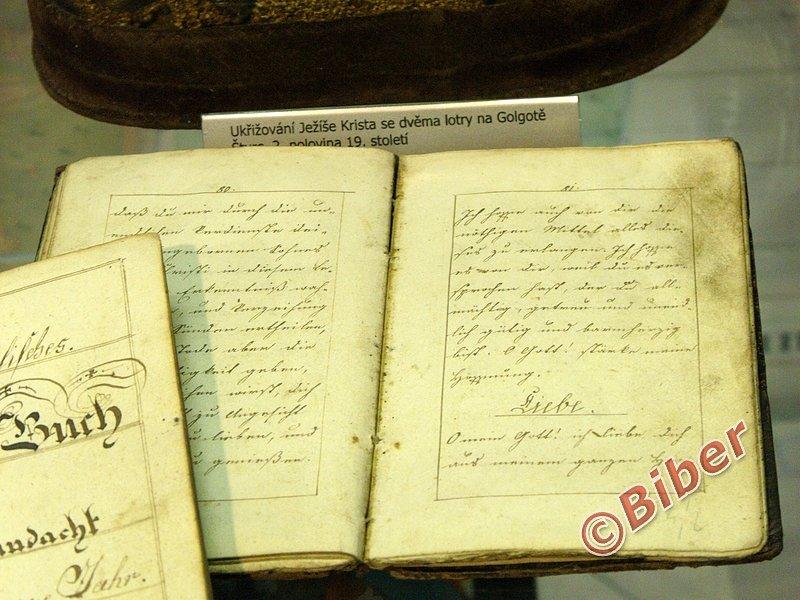 Ukřižování Ježíše Krista se dvěma lotry na Golgotě
Čtvrc, 2. polovina 19. století
80.
daß du mir durch die un-
endlichen Verdienste dei-
ngebornen Sohnes
Christi in diesem Le-
Erkenntniß wah-
, und Verzeihung
Sünden ertheilen,
Tode aber die
igkeit geben,
wirst, dich
zu Angesicht
lieben, und
genießen.
81.
Ich hoffe auch von dir die
nöthigen Mittel alles die-
ses zu erlangen. Ich hoffe
es von dir, weil du es ver-
sprochen hast, der du all-
mächtig, getreu und unend-
lich gütig und barmherzig
bist. O Gott! stärke meine
Hoffnung.
Liebe.
O mein Gott! ich liebe dich
aus meinem ganzen
lisches.
Buch
andacht
Jahr.
©Biber